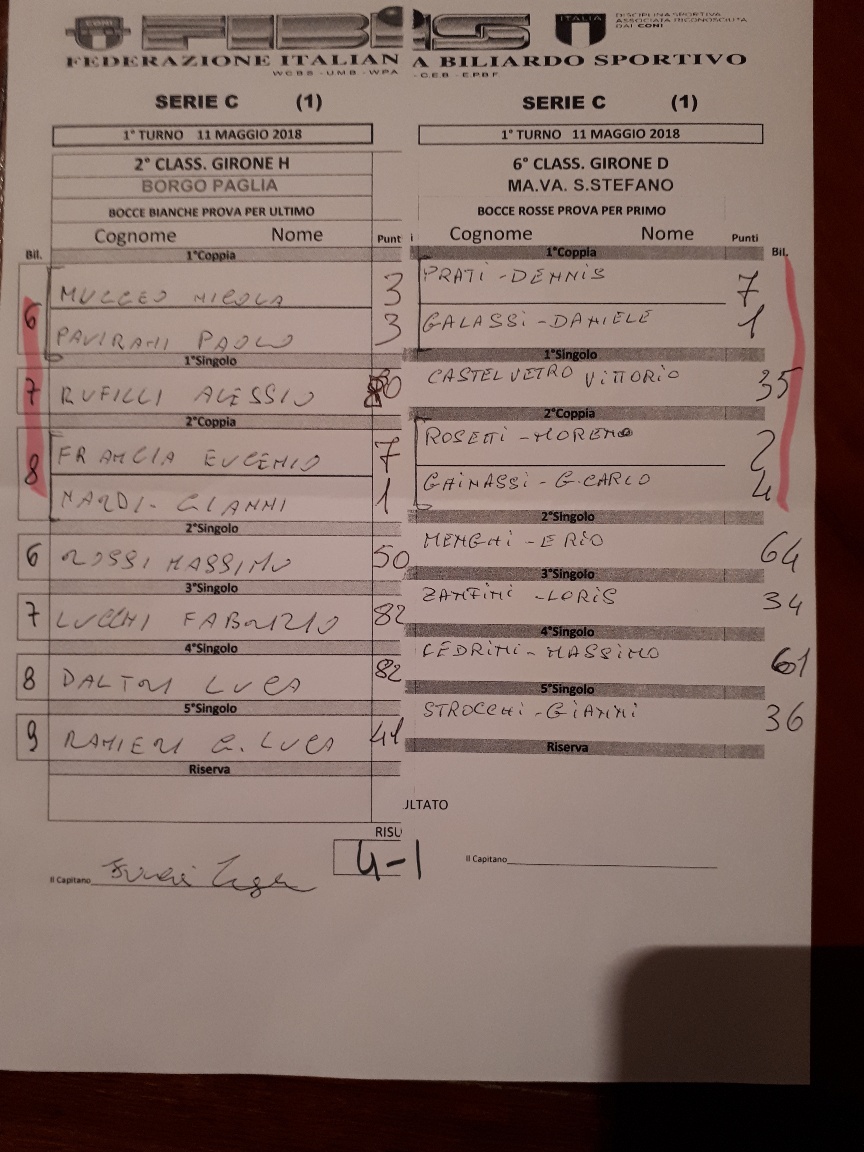 FIBIS
CONI
ITALIA
DISCIPLINA SPORTIVA
ASSOCIATA RICONOSCIUTA
DAL CONI
FEDERAZIONE ITALIAN A BILIARDO SPORTIVO
W C B S - U.M.B - W P A - C.E.B - E.P.B.F
SERIE C (1)
1° TURNO 11 MAGGIO 2018
2° CLASS. GIRONE H
BORGO PAGLIA
BOCCE BIANCHE PROVA PER ULTIMO
Cognome Nome Punt
Bil. 1°Coppia
6 MUCCEO NICOLA 3
PAVIRANI PAOLO 3
1°Singolo
7 RUFILLI ALESSIO 80
2°Coppia
8 FRANCIA EUGENIO 7
NARDI - GIANNI 1
2°Singolo
6 ROSSI MASSIMO 50
3°Singolo
7 LUCCHI FABRIZIO 82
4°Singolo
8 DALTORI LUCA 82
5°Singolo
9 RANIERI G. LUCA
Riserva
RISU
4-1
Il Capitano
SERIE C (1)
1° TURNO 11 MAGGIO 2018
6° CLASS. GIRONE D
MA.VA. S.STEFANO
BOCCE ROSSE PROVA PER PRIMO
Cognome Nome Punti
1°Coppia Bil.
PRATI - DENNIS 7
GALASSI - DANIELE 1
1°Singolo
CASTELVETRO VITTORIO 35
2°Coppia
ROSETTI - MORENO 2
GHINASSI - G.CARLO 4
2°Singolo
MENGHI - ERIO 64
3°Singolo
ZANFINI - LORIS 34
4°Singolo
CEDRINI - MASSIMO 61
5°Singolo
STROCCHI - GIANNI 36
Riserva
JLTATO
Il Capitano